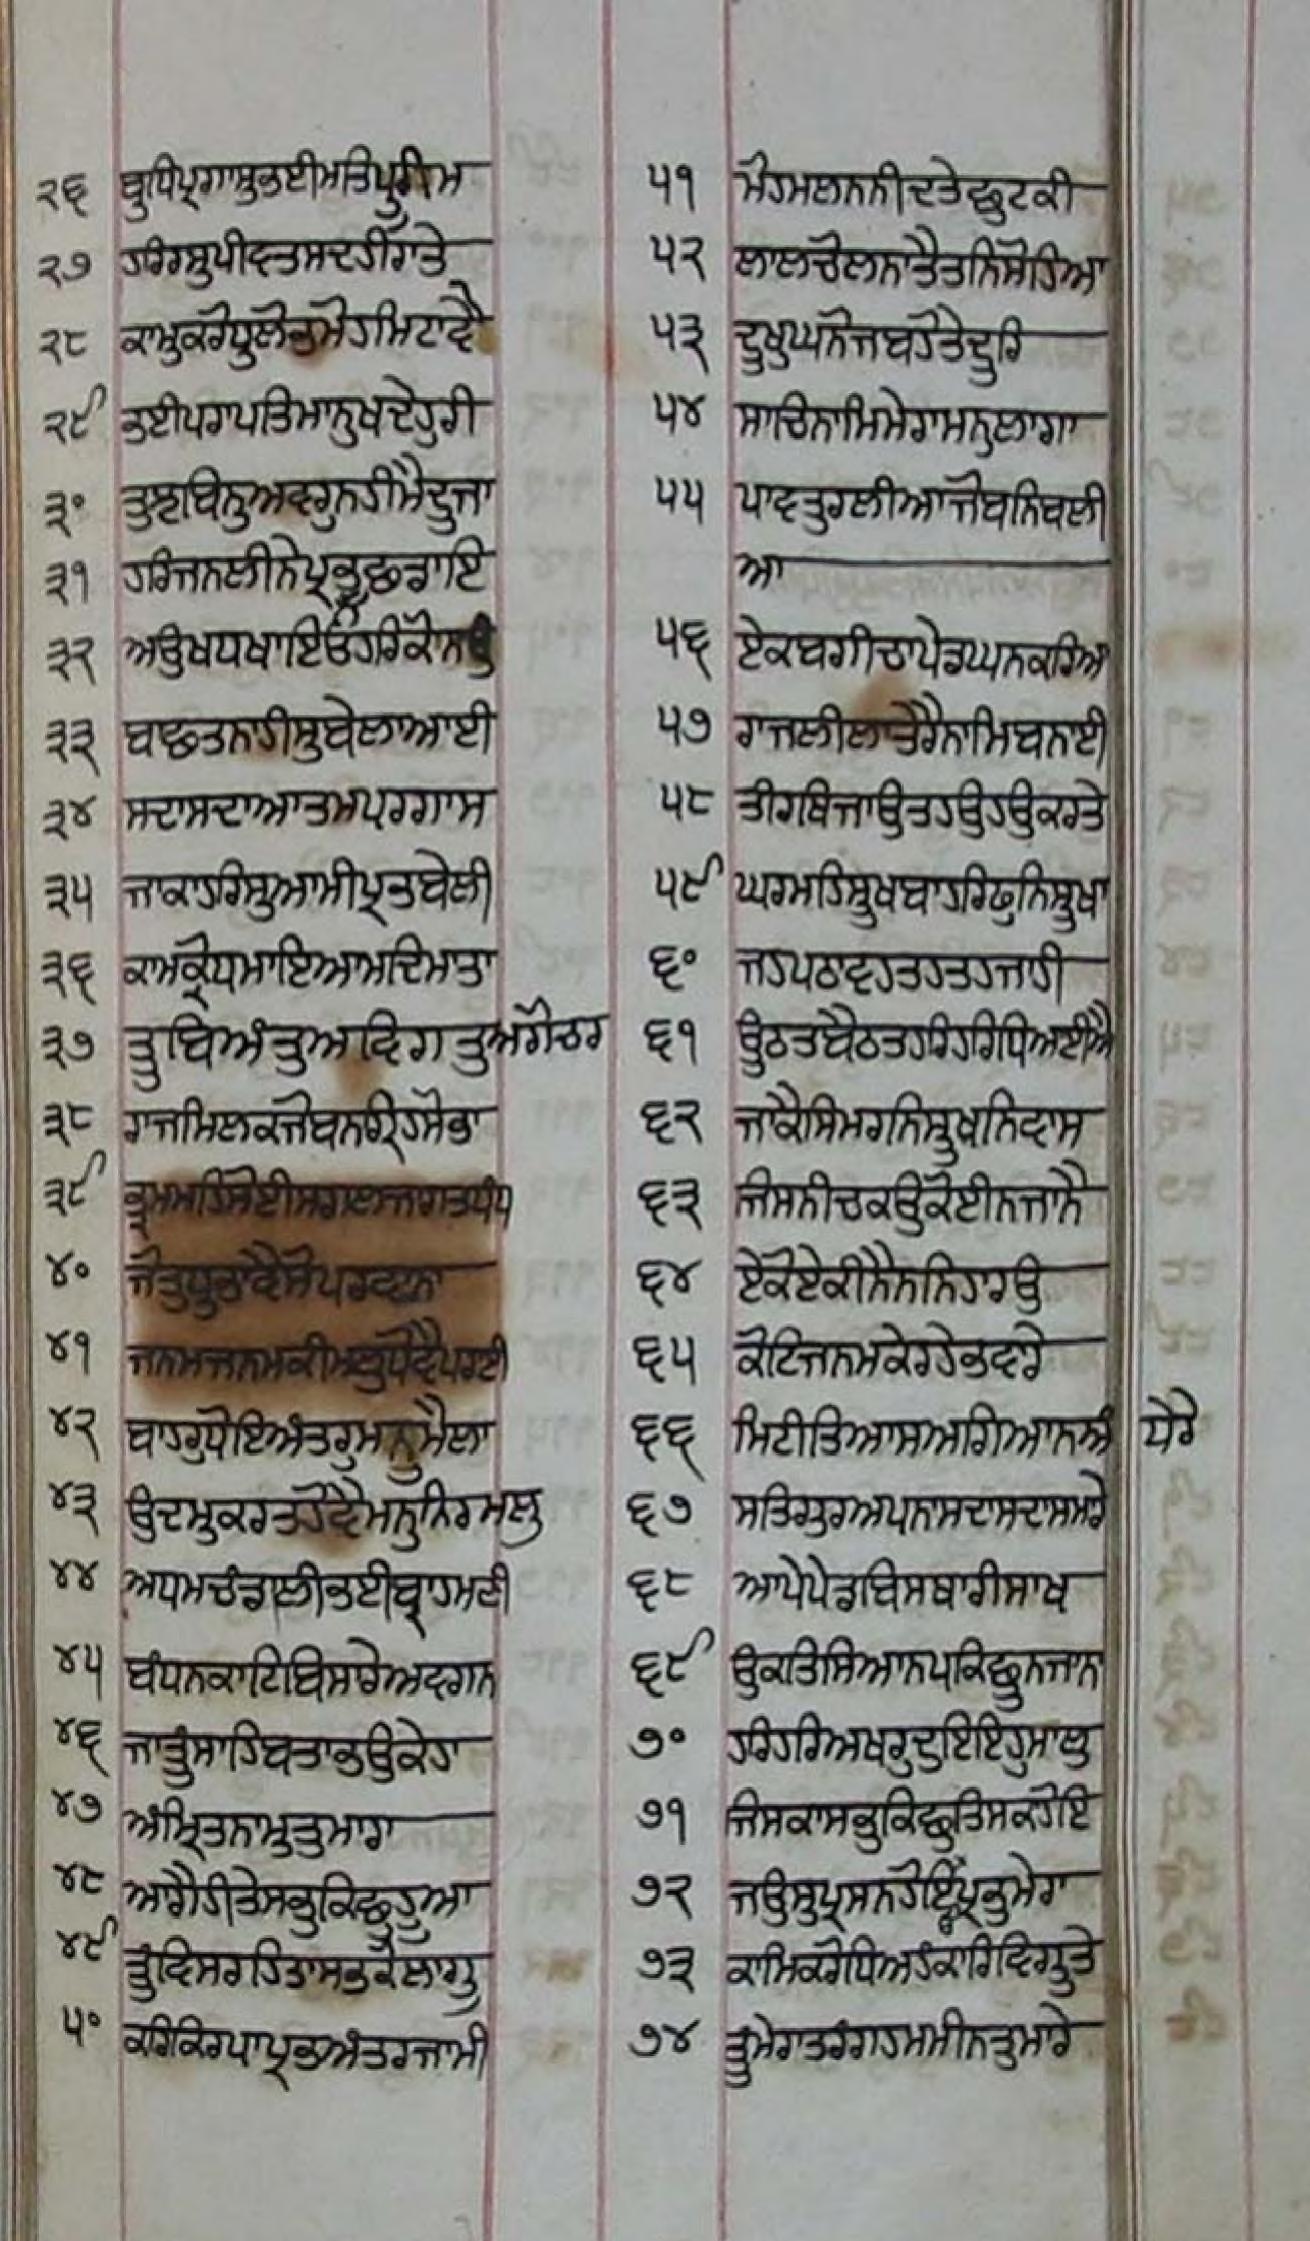 ੨੬ ਬੁਧਿਪ੍ਰਗਾਸੁਭਈਮਤਿਪੂਰੀਮ
੨੭ ਹਰਿਰਸੁਪੀਵਤਸਦਹੀਰਾਤੇ
੨੮ ਕਾਮੁਕਰੋਧੁਲੋਭੁਮੋਹਮਿਟਾਵੈ
੨੯ ਭਈਪਰਾਪਤਿਮਾਨੁਖਦੇਹੁਰੀ
੩੦ ਤੁਝਬਿਨੁਅਵਰੁਨਹੀਮੈਦੂਜਾ
੩੧ ਹਰਿਜਨਲੀਨੇਪ੍ਰਭੂਛਡਾਇ
੩੨ ਅਉਖਧਖਾਇਓਹਰਿਕੋਨਾਉ
੩੩ ਬਾਛਤਨਾਹੀਸੁਬੇਲਾਆਈ
੩੪ ਸਦਾਸਦਾਆਤਮਪਰਗਾਸ
੩੫ ਜਾਕਾਹਰਿਸੁਆਮੀਪ੍ਰਭਬੇਲੀ
੩੬ ਕਾਮਕ੍ਰੋਧਮਾਇਆਮਦਿਮਾਤਾ
੩੭ ਤੂਬਿਅੰਤੁਅਵਿਗਤੁਅਗੋਚਰ
੩੮ ਰਾਜਮਿਲਕਜੋਬਨਗ੍ਰਿਹਸੋਭਾ
੩੯ ਭ੍ਰਮਮਹਿਸੋਈਸਗਲਜਗਤਧੰਧ
੪੦ ਜੋਤੁਧੁਭਾਵੈਸੋਪਰਵਾਨਾ
੪੧ ਜਨਮਜਨਮਕੀਮਲੁਧੋਵੈਪਰਾਈ
੪੨ ਬਾਹਰੁਧੋਇਅੰਤਰੁਮਨੁਮੈਲਾ
੪੩ ਉਦਮੁਕਰਤਹੋਵੈਮਨੁਨਿਰਮਲੁ
੪੪ ਅਧਮਚੰਡਾਲੀਭਈਬ੍ਰਹਮਣੀ
੪੫ ਬੰਧਨਕਾਟਿਬਿਸਾਰੇਅਵਗਨ
੪੬ ਜਾਤੂੰਸਾਹਿਬਤਾਭਉਕੇਹਾ
੪੭ ਅੰਮ੍ਰਿਤਨਾਮੁਤੁਮਾਰਾ
੪੮ ਆਗੈਹੀਤੇਸਭੁਕਿਛੁਹੂਆ
੪੯ ਤੂੰਵਿਸਰਹਿਤਾਸਭੁਕੋਲਾਗੂ
੫੦ ਕਰਿਕਿਰਪਾਪ੍ਰਭਅੰਤਰਜਾਮੀ
੫੧ ਮੋਹਮਲਾਨਨੀਦਤੇਛੁਟਕੀ
੫੨ ਲਾਲਚੋਲਨਾਤੈਤਨਿਸੋਹਿਆ
੫੩ ਦੂਖੁਘਨੋਜਬਹੋਤੇਦੂਰਿ
੫੪ ਸਾਚਿਨਾਮਿਮੇਰਾਮਨੁਲਾਗਾ
੫੫ ਪਾਵਤੁਰਲੀਆਜੋਬਨਿਬਲੀ
ਆ
੫੬ ਏਕਬਗੀਚਾਪੇਡਘਨਕਰਿਆ
੫੭ ਰਾਜਲੀਲਾਤੇਰੈਨਾਮਿਬਨਾਈ
੫੮ ਤੀਰਥਿਜਾਉਤਹਉਹਉਕਰਤੇ
੫੯ ਘਰਮਹਿਸੂਖਬਾਹਰਿਫੁਨਿਸੂਖਾ
੬੦ ਜਹਪਠਾਵਹੁਤਹਤਹਜਾਹੀ
੬੧ ਊਠਤਬੈਠਤਹਰਿਹਰਿਧਿਆਈਐ
੬੨ ਜਾਕੈਸਿਮਰਨਿਸੂਖਨਿਵਾਸ
੬੩ ਜਿਸਨੀਚਕਉਕੋਈਨਜਾਨੈ
੬੪ ਏਕੋਏਕੀਨੈਨਨਿਹਾਰਉ
੬੫ ਕੋਟਿਜਨਮਕੇਰਹੇਭਵਾਰੇ
੬੬ ਮਿਟੀਤਿਆਸਅਗਿਆਨਅੰ ਧੇਰੇ
੬੭ ਸਤਿਗੁਰਅਪਨਾਸਦਾਸਦਾਸਮਾਰੇ
੬੮ ਆਪੇਪੇਡਬਿਸਥਾਰੀਸਾਖ
੬੯ ਉਕਤਿਸਿਆਨਪਕਿਛੂਨਜਾਨਾ
੭੦ ਹਰਿਹਰਿਅਖਰੁਦੁਇਇਹੁਮਾਲਾ
੭੧ ਜਿਸਕਾਸਭੁਕਿਛੁਤਿਸਕਾਹੋਇ
੭੨ ਜਉਸੁਪ੍ਰਸਨਹੋਇਓਪ੍ਰਭੁਮੇਰਾ
੭੩ ਕਾਮਿਕਰੋਧਿਅਹੰਕਾਰਿਵਿਗੂਤੇ
੭੪ ਤੂਮੇਰਾਤਰੰਗਹਮਮੀਨਤੁਮਾਰੇ